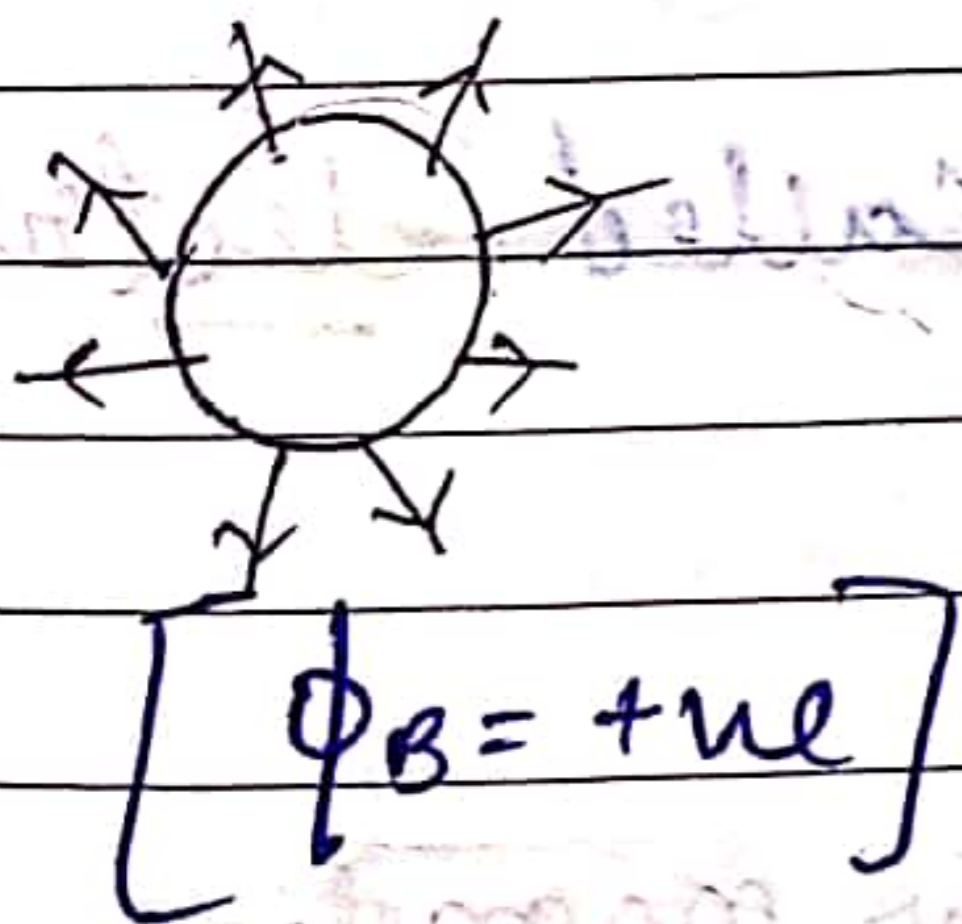 [ ϕB = +ve ]